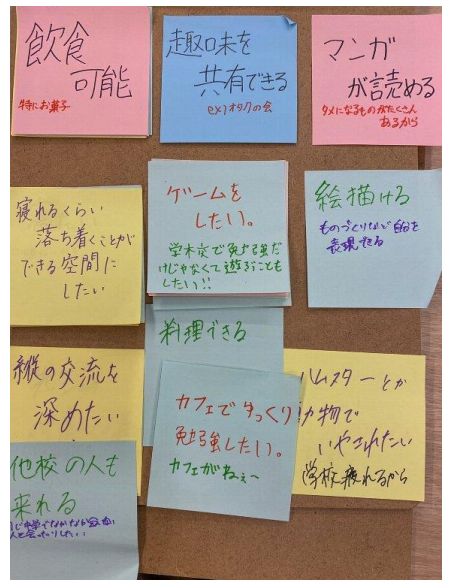 飲食
可能
特にお菓子
趣味を
共有できる
ex) オタクの会
マンガ
が読める
タメになるものがたくさん
あるから
寝れるくらい
落ち着くことが
できる空間に
したい
ゲームを
したい。
学校で勉強だ
けじゃなくて遊ぶことも
したい!!
絵描ける
ものづくりなど自分を
表現できる
料理できる
縦の交流を
深めたい
カフェでゆっくり
勉強したい。
カフェがねぇ〜
ハムスターとか
動物で
いやされたい
学校疲れるから
他校の人も
来れる